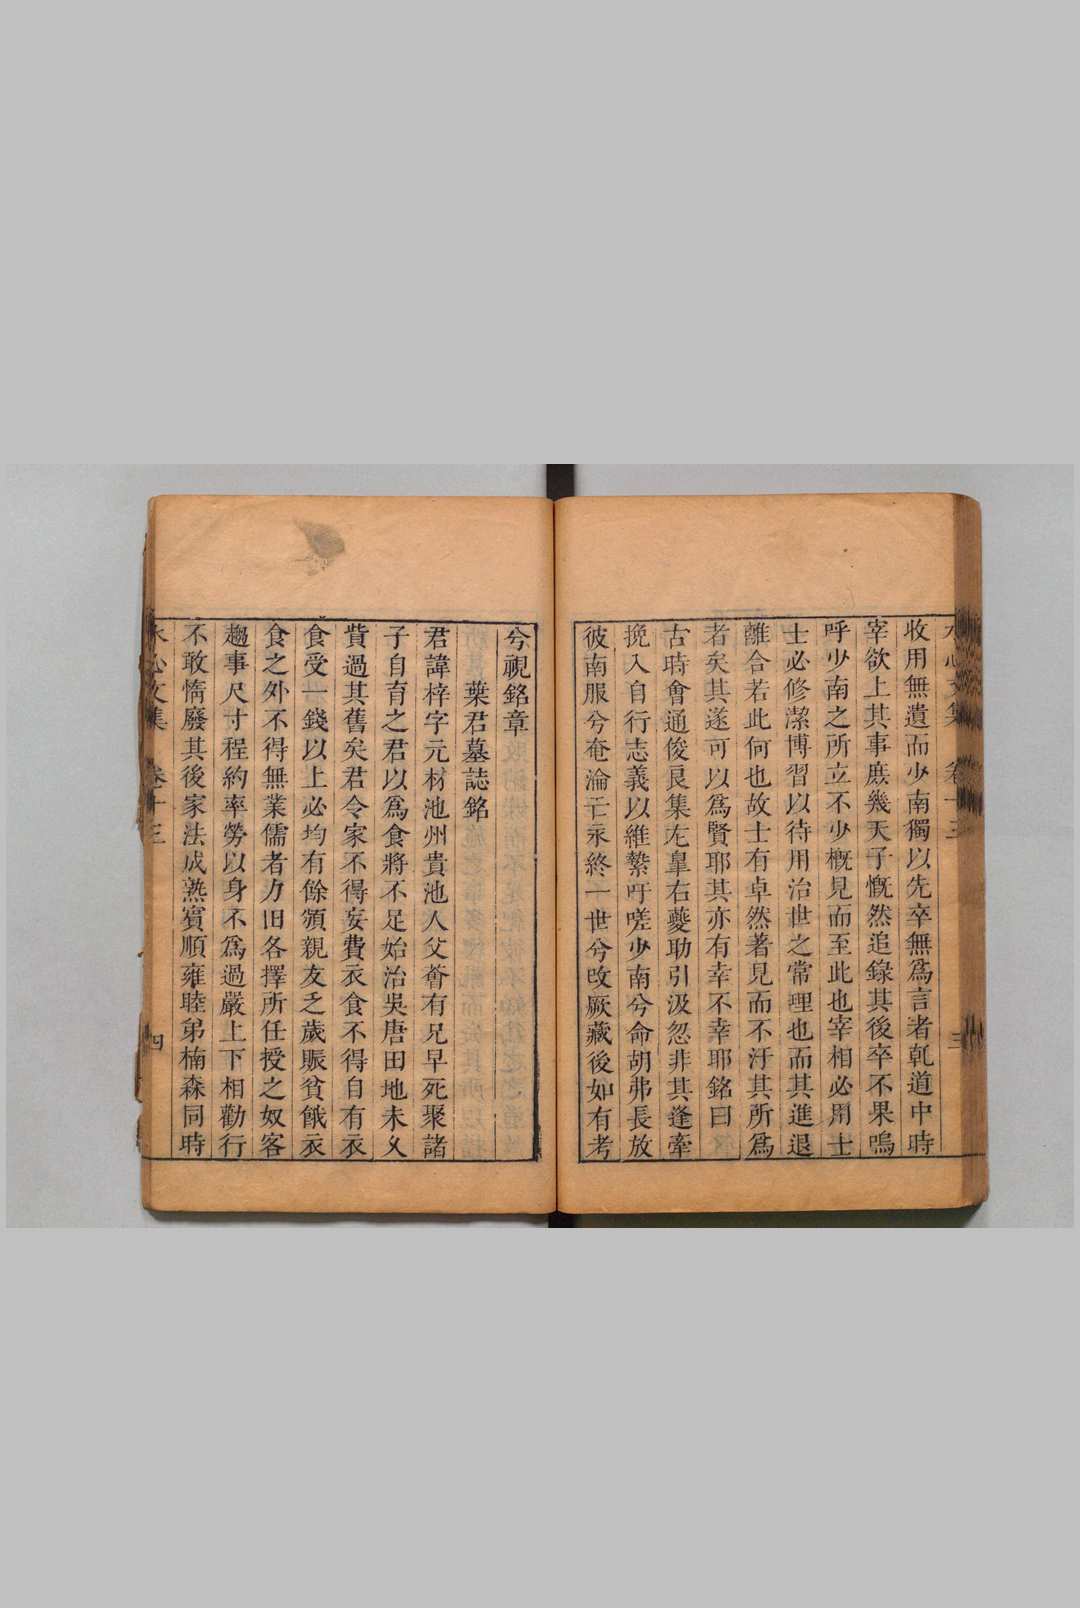 水心文集 卷十三 三
收用無遺而少南獨以先卒無為言者乹道中時
宰欲上其事庶幾天子慨然追錄其後卒不果嗚
呼少南之所立不少槪見而至此也宰相必用士
士必修潔博習以待用治世之常理也而其進退
離合若此何也故士有卓然著見而不汙其所為
者矣其遂可以為賢耶其亦有幸不幸耶銘曰
古時會通俊良集左皐右夔助引汲忽非其逢牽
挽入自行志義以維縶吁嗟少南兮命胡弗長放
彼南服兮奄淪亡永終一世兮攺厥藏後如有考
兮視銘章
葉君墓誌銘
君諱梓字元材池州貴池人父薈有兄早死聚諸
子自育之君以為食將不足始治吳唐田地未乆
貲過其舊矣君令家不得妄費衣食不得自有衣
食受一錢以上必均有餘頒親友乏歲賑貧餓衣
食之外不得無業儒者力旧各擇所任授之奴客
趨事尺寸程約率勞以身不為過嚴上下相勸行
不敢惰廢其後家法成熟賓順雍睦弟楠森同時
水心文集 卷十三 四